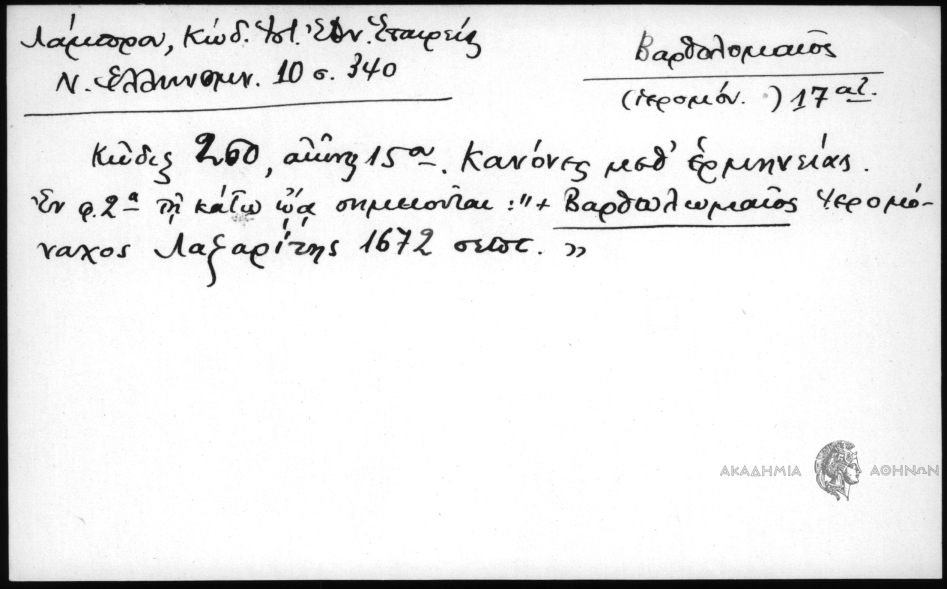 Λάμπρου, Κώδ. Ἱστ. Ἐθν. Ἑταιρείς
Ν. Ἑλληνομν. 10 σ. 340
Βαρθολομαῖος
(ἱερομόν. ) 17 αἰ.
Κῶδιξ 250, αἰῶνος 15ου. Κανόνες μεθ' ἑρμηνείας.
Ἐν φ. 2α τῇ κάτω ὤᾳ σημειοῦται : "+ Βαρθωλωμαῖος Ἱερομό-
ναχος Λαζαρίτης 1672 σεπτ. »
ΑΚΑΔΗΜΙΑ ΑΘΗΝΩΝ